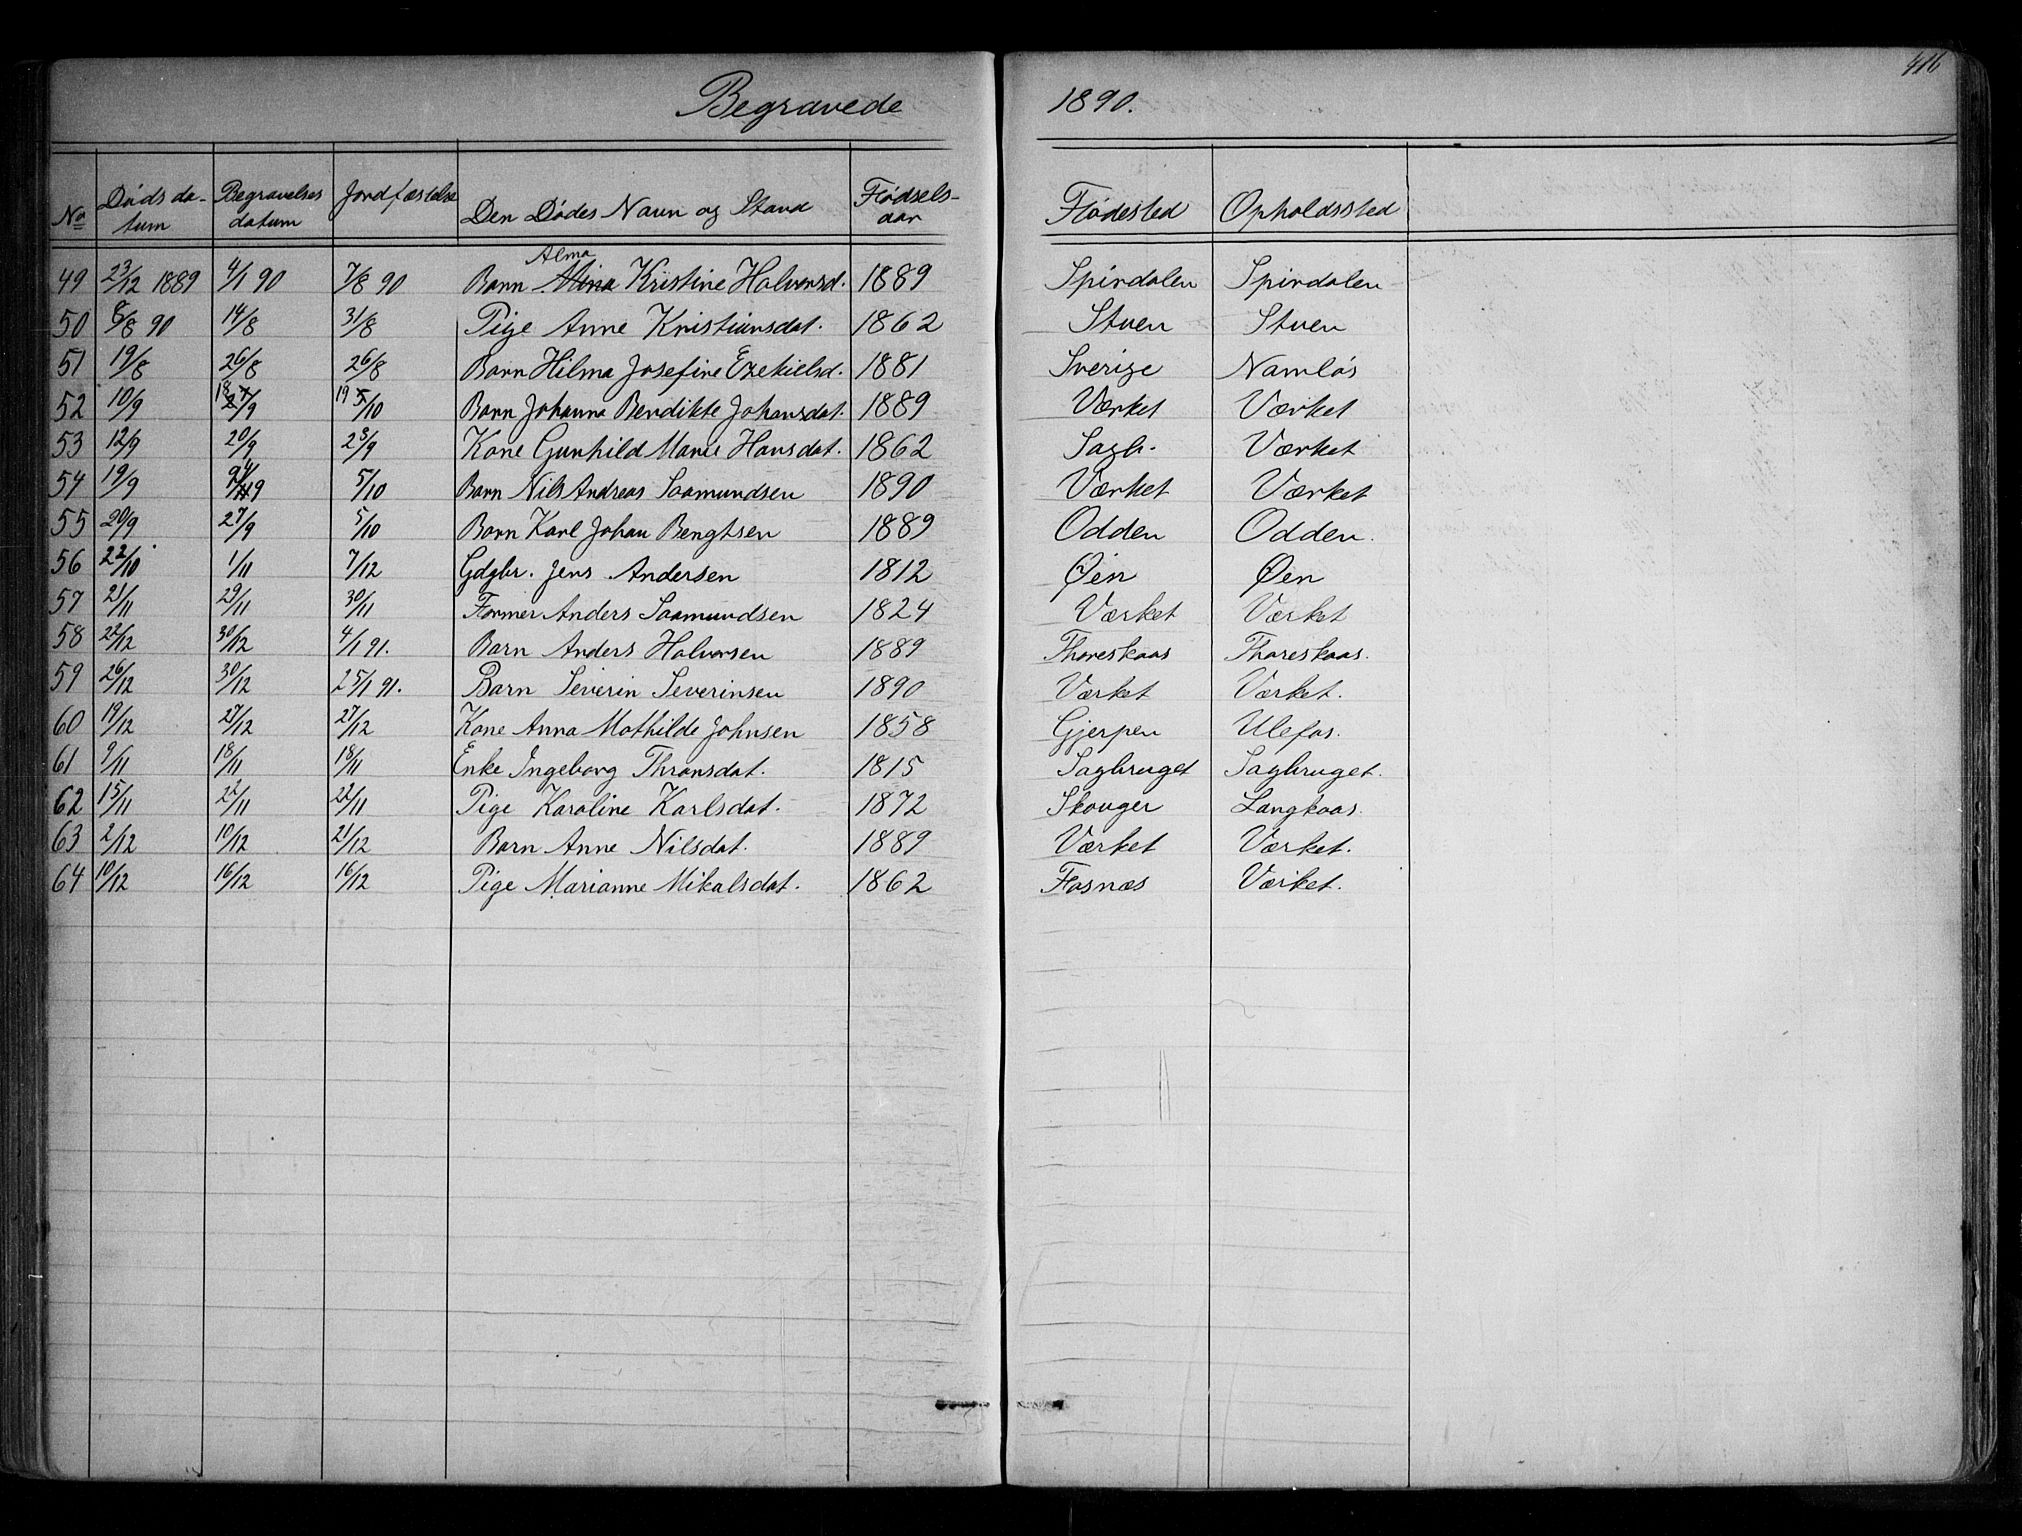 416
Begravede 1890.
No Døds datum Begravelses datum Jordfæstelse Den Dødes Navn og Stand Fødselsaar Fødested Opholdssted
49 23/12 1889 4/1 90 7/8 90 Barn Alma Kristine Halvorsd. 1889 Spirdalen Spirdalen
50 8/8 90 14/8 31/8 Pige Anne Kristiansdat. 1862 Stuen Stuen
51 19/8 26/8 26/8 Barn Hilma Josefine Ezekielsd. 1881 Sverige Namløs
52 10/9 18/9 19/10 Barn Johanna Bendikte Johansdat. 1889 Værket Værket
53 12/9 20/9 23/9 Kone Gunhild Marie Hansdat. 1862 Sagb. Værket
54 19/9 5/10 Barn Nils Andreas Saamundsen 1890 Værket Værket
55 20/9 27/9 5/10 Barn Karl Johan Bengtsen 1889 Odden Odden.
56 22/10 1/11 7/12 Gdgbr. Jens Andersen 1812 Øen Øen
57 21/11 29/11 30/11 Former Anders Saamundsen 1824 Værket Værket
58 22/12 30/12 4/1 91. Barn Anders Halvorsen 1889 Thoreskaas Thoreskaas.
59 26/12 30/12 25/1 91. Barn Severin Severinsen 1890 Værket Værket.
60 19/12 27/12 27/12 Kone Anna Mathilde Johnsen 1858 Gjerpen Ulefos.
61 9/11 18/11 18/11 Enke Ingeborg Thronsdat. 1815 Sagbruget Sagbruget.
62 15/11 22/11 22/11 Pige Karoline Karlsdat. 1872 Skouger Langkaas.
63 2/12 10/12 21/12 Barn Anne Nilsdat. 1889 Værket Værket.
64 10/12 16/12 16/12 Pige Marianne Mikalsdat. 1862 Fosnæs Værket.